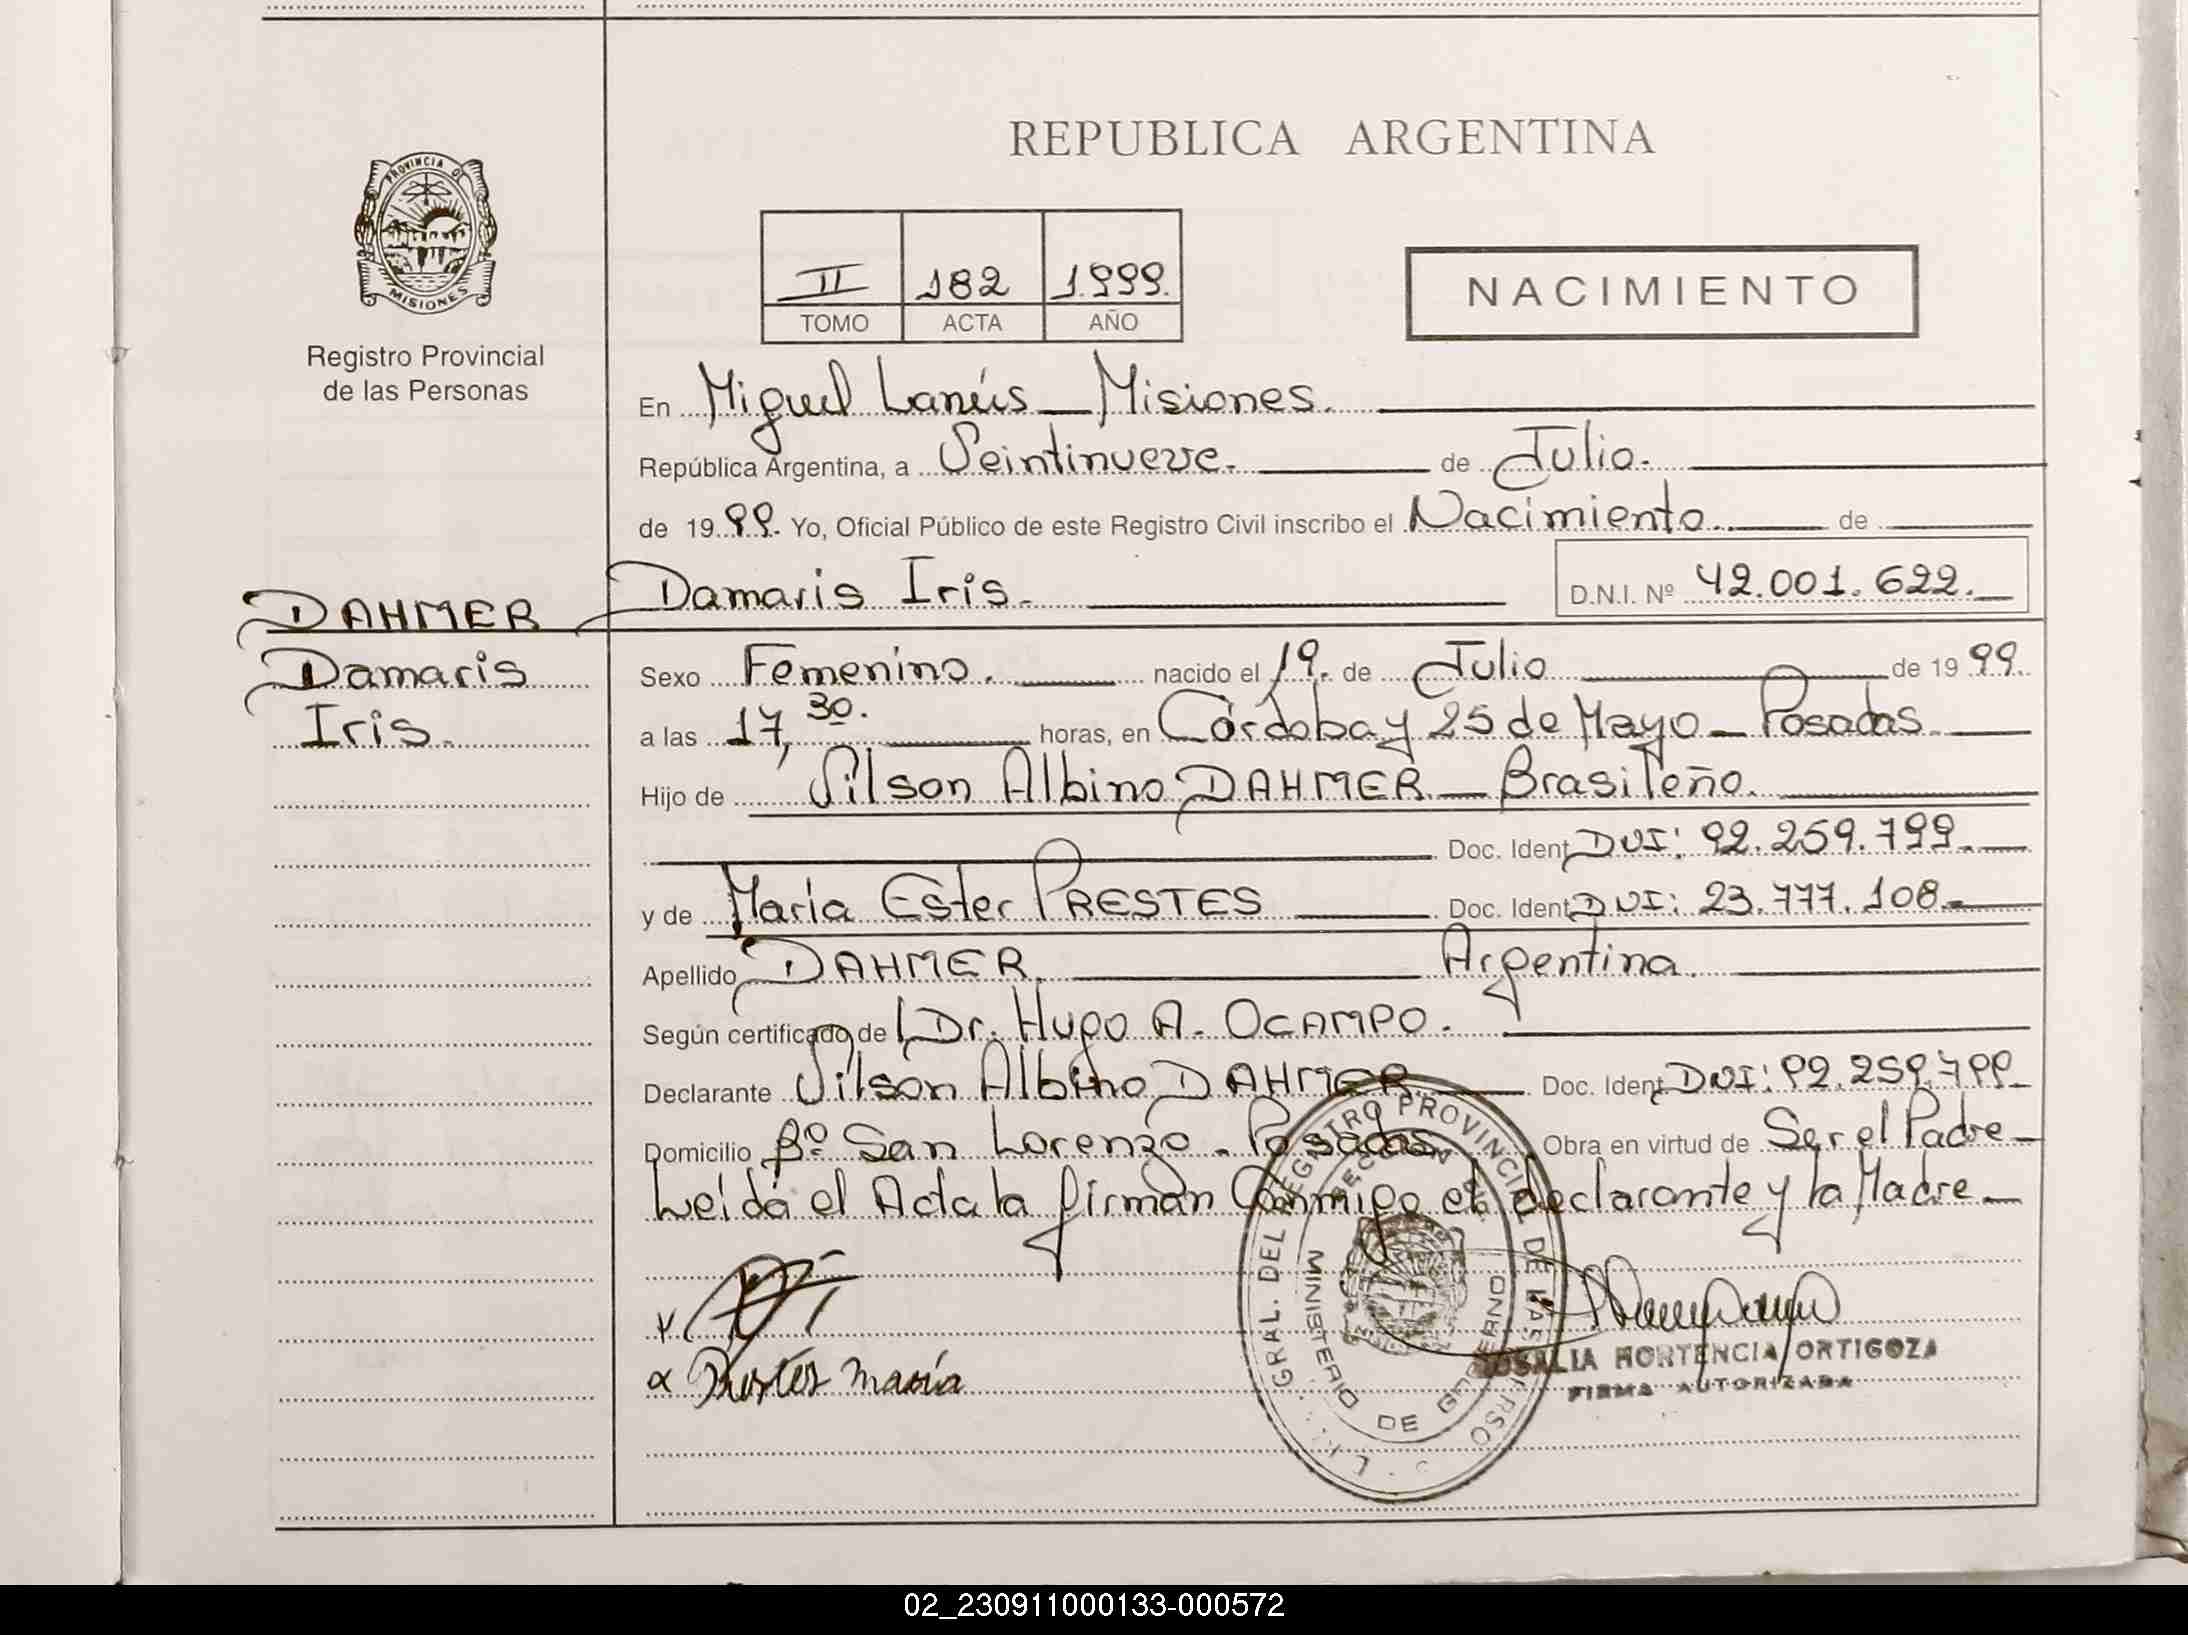 REPUBLICA ARGENTINA
PROVINCIA DE
MISIONES
Registro Provincial
de las Personas
II 182 1.999.
TOMO ACTA AÑO
NACIMIENTO
En Miguel Lanús - Misiones.
República Argentina, a Veintinueve. de Julio.
de 1999. Yo, Oficial Público de este Registro Civil inscribo el Nacimiento de
Damaris Iris. D.N.I. Nº 42.001.622.
DAHMER
Damaris
Iris.
Sexo Femenino. nacido el 19. de Julio de 1999.
a las 17,30. horas, en Córdoba y 25 de Mayo - Posadas.
Hijo de Vilson Albino DAHMER - Brasileño.
Doc. Ident DNI: 92.259.799.
y de María Ester PRESTES Doc. Ident DNI: 23.777.108.
Apellido DAHMER Argentina.
Según certificado de Dr. Hugo A. OCAMPO.
Declarante Vilson Albino DAHMER Doc. Ident DNI: 92.259.799.
Domicilio Bº San Lorenzo - Posadas Obra en virtud de Ser el Padre
Leída el Acta la firman Conmigo el declarante y la Madre
Prestes María
GRAL. DEL REGISTRO PROVINCIAL DE LAS
MINISTERIO DE GOBIERNO
ROSALIA HORTENCIA ORTIGOZA
FIRMA AUTORIZADA
02_230911000133-000572